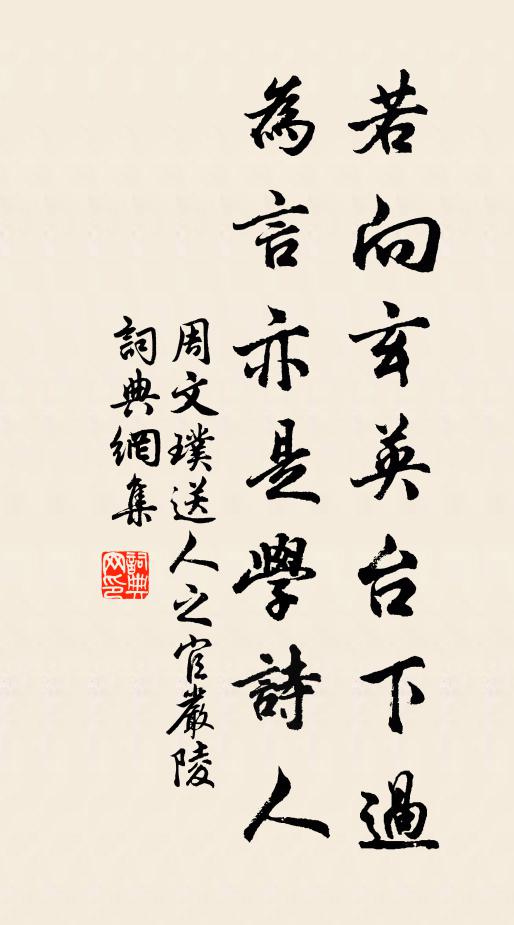 若向玄英台下過
為言亦是學詩人
周文璞送人之官嚴陵
詞典網集
詞典網印